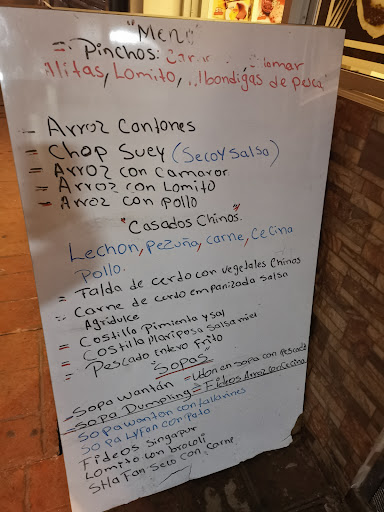 "Menú"
= Pinchos: Car
Alitas, Lomito, Albondigas de pesca
- Arroz Cantones
= Chop Suey (Seco y Salsa)
= Arroz con Camaror
= Arroz con Lomito
- Arroz con pollo
"Casados Chinos"
Lechon, pezuña, carne, Cecina
Pollo.
= Falda de cerdo con vegetales Chinos
- Carne de cerdo empanizada salsa
Agridulce
= Costilla Pimienta y sal
= Costilla Mariposa Salsa miel
= Pescado entero Frito
"Sopas"
Sopa wantán = Udon en sopa con pescado
- Sopa Dumpling = Fideos Arroz con Cecina
Sopa wanton con
Sopa Hyfan con pato
Fideos Singapur
Lomito con brocoli
Sha Fan Seco con Carne